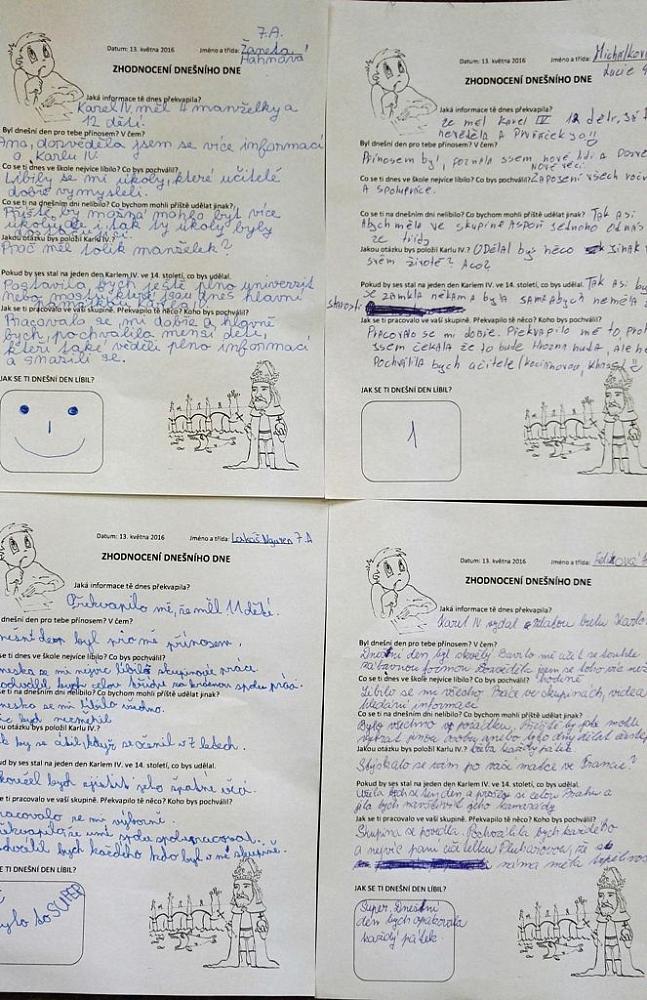 7.A
Datum: 13. května 2016 Jméno a třída: Žaneta Hahnová
ZHODNOCENÍ DNEŠNÍHO DNE
Jaká informace tě dnes překvapila?
Karel IV. měl 4 manželky a
12 dětí.
Byl dnešní den pro tebe přínosem? V čem?
Ano, dozvěděla jsem se více informací
o Karlu IV.
Co se ti dnes ve škole nejvíce líbilo? Co bys pochválil?
Líbily se mi úkoly, které učitelé
dobře vymysleli.
Co se ti na dnešním dni nelíbilo? Co bychom mohli příště udělat jinak?
Příště by možná mohlo být více
úkolů, ale i tak ty úkoly byly
Jakou otázku bys položil Karlu IV.?
Proč měl tolik manželek?
Pokud by ses stal na jeden den Karlem IV. ve 14. století, co bys udělal.
Postavila bych ještě plno univerzit
nebo mostů, které jsou dnes hlavní
Jak se ti pracovalo ve vaší skupině? Překvapilo tě něco? Koho bys pochválil?
Pracovalo se mi dobře a hlavně
bych pochválila menší děti,
kteří také věděli plno informací
a snažili se.
JAK SE TI DNEŠNÍ DEN LÍBIL?
Datum: 13. května 2016 Jméno a třída: Lucie
ZHODNOCENÍ DNEŠNÍHO DNE
Jaká informace tě dnes překvapila?
že měl Karel IV. 12 dětí,
nevěděla
Byl dnešní den pro tebe přínosem? V čem?
Přínosem byl, poznala jsem nové lidi a
nové věci.
Co se ti dnes ve škole nejvíce líbilo? Co bys pochválil? Zapojení všech
a spolupráce.
Co se ti na dnešním dni nelíbilo? Co bychom mohli příště udělat jinak? Tak asi
Abych měla ve skupině aspoň jednoho
ze třídy
Jakou otázku bys položil Karlu IV.? Udělal bys něco jinak v
svém životě? A co?
Pokud by ses stal na jeden den Karlem IV. ve 14. století, co bys udělal. Tak asi
se zamkla někam a byla sama abych neměla
starosti
Jak se ti pracovalo ve vaší skupině? Překvapilo tě něco? Koho bys pochválil?
Pracovalo se mi dobře. Překvapilo mě to,
jsem čekala že to bude hrozná nuda, ale
Pochválila bych učitele
JAK SE TI DNEŠNÍ DEN LÍBIL?
1
Datum: 13. května 2016 Jméno a třída: Lukáš Nguyen 7.A
ZHODNOCENÍ DNEŠNÍHO DNE
Jaká informace tě dnes překvapila?
Překvapilo mě, že měl 11 dětí.
dnešní den pro tebe přínosem? V čem?
den byl pro mě přínosem.
se ti dnes ve škole nejvíce líbilo? Co bys pochválil?
se mi nejvíc líbila skupinová práce.
bych celou třídu za krásnou spolu práci.
se ti na dnešním dni nelíbilo? Co bychom mohli příště udělat jinak?
se mi líbilo všechno.
bych nezměnil
ou otázku bys položil Karlu IV.?
by se cítil, kdyby se oženil v 7 letech.
ud by ses stal na jeden den Karlem IV. ve 14. století, co bys udělal.
bych zjistit jeho špatné věci.
e ti pracovalo ve vaší skupině? Překvapilo tě něco? Koho bys pochválil?
racovalo se mi výborně.
spolu spolupracovat.
bych každého kdo byl v mé skupině.
E TI DNEŠNÍ DEN LÍBIL?
ylo to SUPER
Datum: 13. května 2016 Jméno a třída:
ZHODNOCENÍ DNEŠNÍHO DNE
Jaká informace tě dnes překvapila?
Karel IV vydal zlatou bulu
Byl dnešní den pro tebe přínosem? V čem?
Dnešní den byl skvělý. Bavilo mě učit se touhle
zábavnou formou. Dozvěděla jsem se toho více než
hodině
Co se ti dnes ve škole nejvíce líbilo? Co bys pochválil?
Líbilo se mi všechno. Práce ve skupinách, videa
hledání informací
Co se ti na dnešním dni nelíbilo? Co bychom mohli příště udělat jinak?
Bylo všechno v pořádku. Příště by jste mohli
vybrat jinou osobu anebo tyto dny dělat častěji
Jakou otázku bys položil Karlu IV.? třeba každý pátek.
Stýskalo se vám po vaší matce ve Francii?
Pokud by ses stal na jeden den Karlem IV. ve 14. století, co bys udělal.
Prahu a
bych navštívit jeho kamarády
Jak se ti pracovalo ve vaší skupině? Překvapilo tě něco? Koho bys pochválil?
Skupina se povedla. Pochválila bych každého
a nejvíc paní učitelku
JAK SE TI DNEŠNÍ DEN LÍBIL?
Super. Dnešní
den bych opakovala
každý pátek.